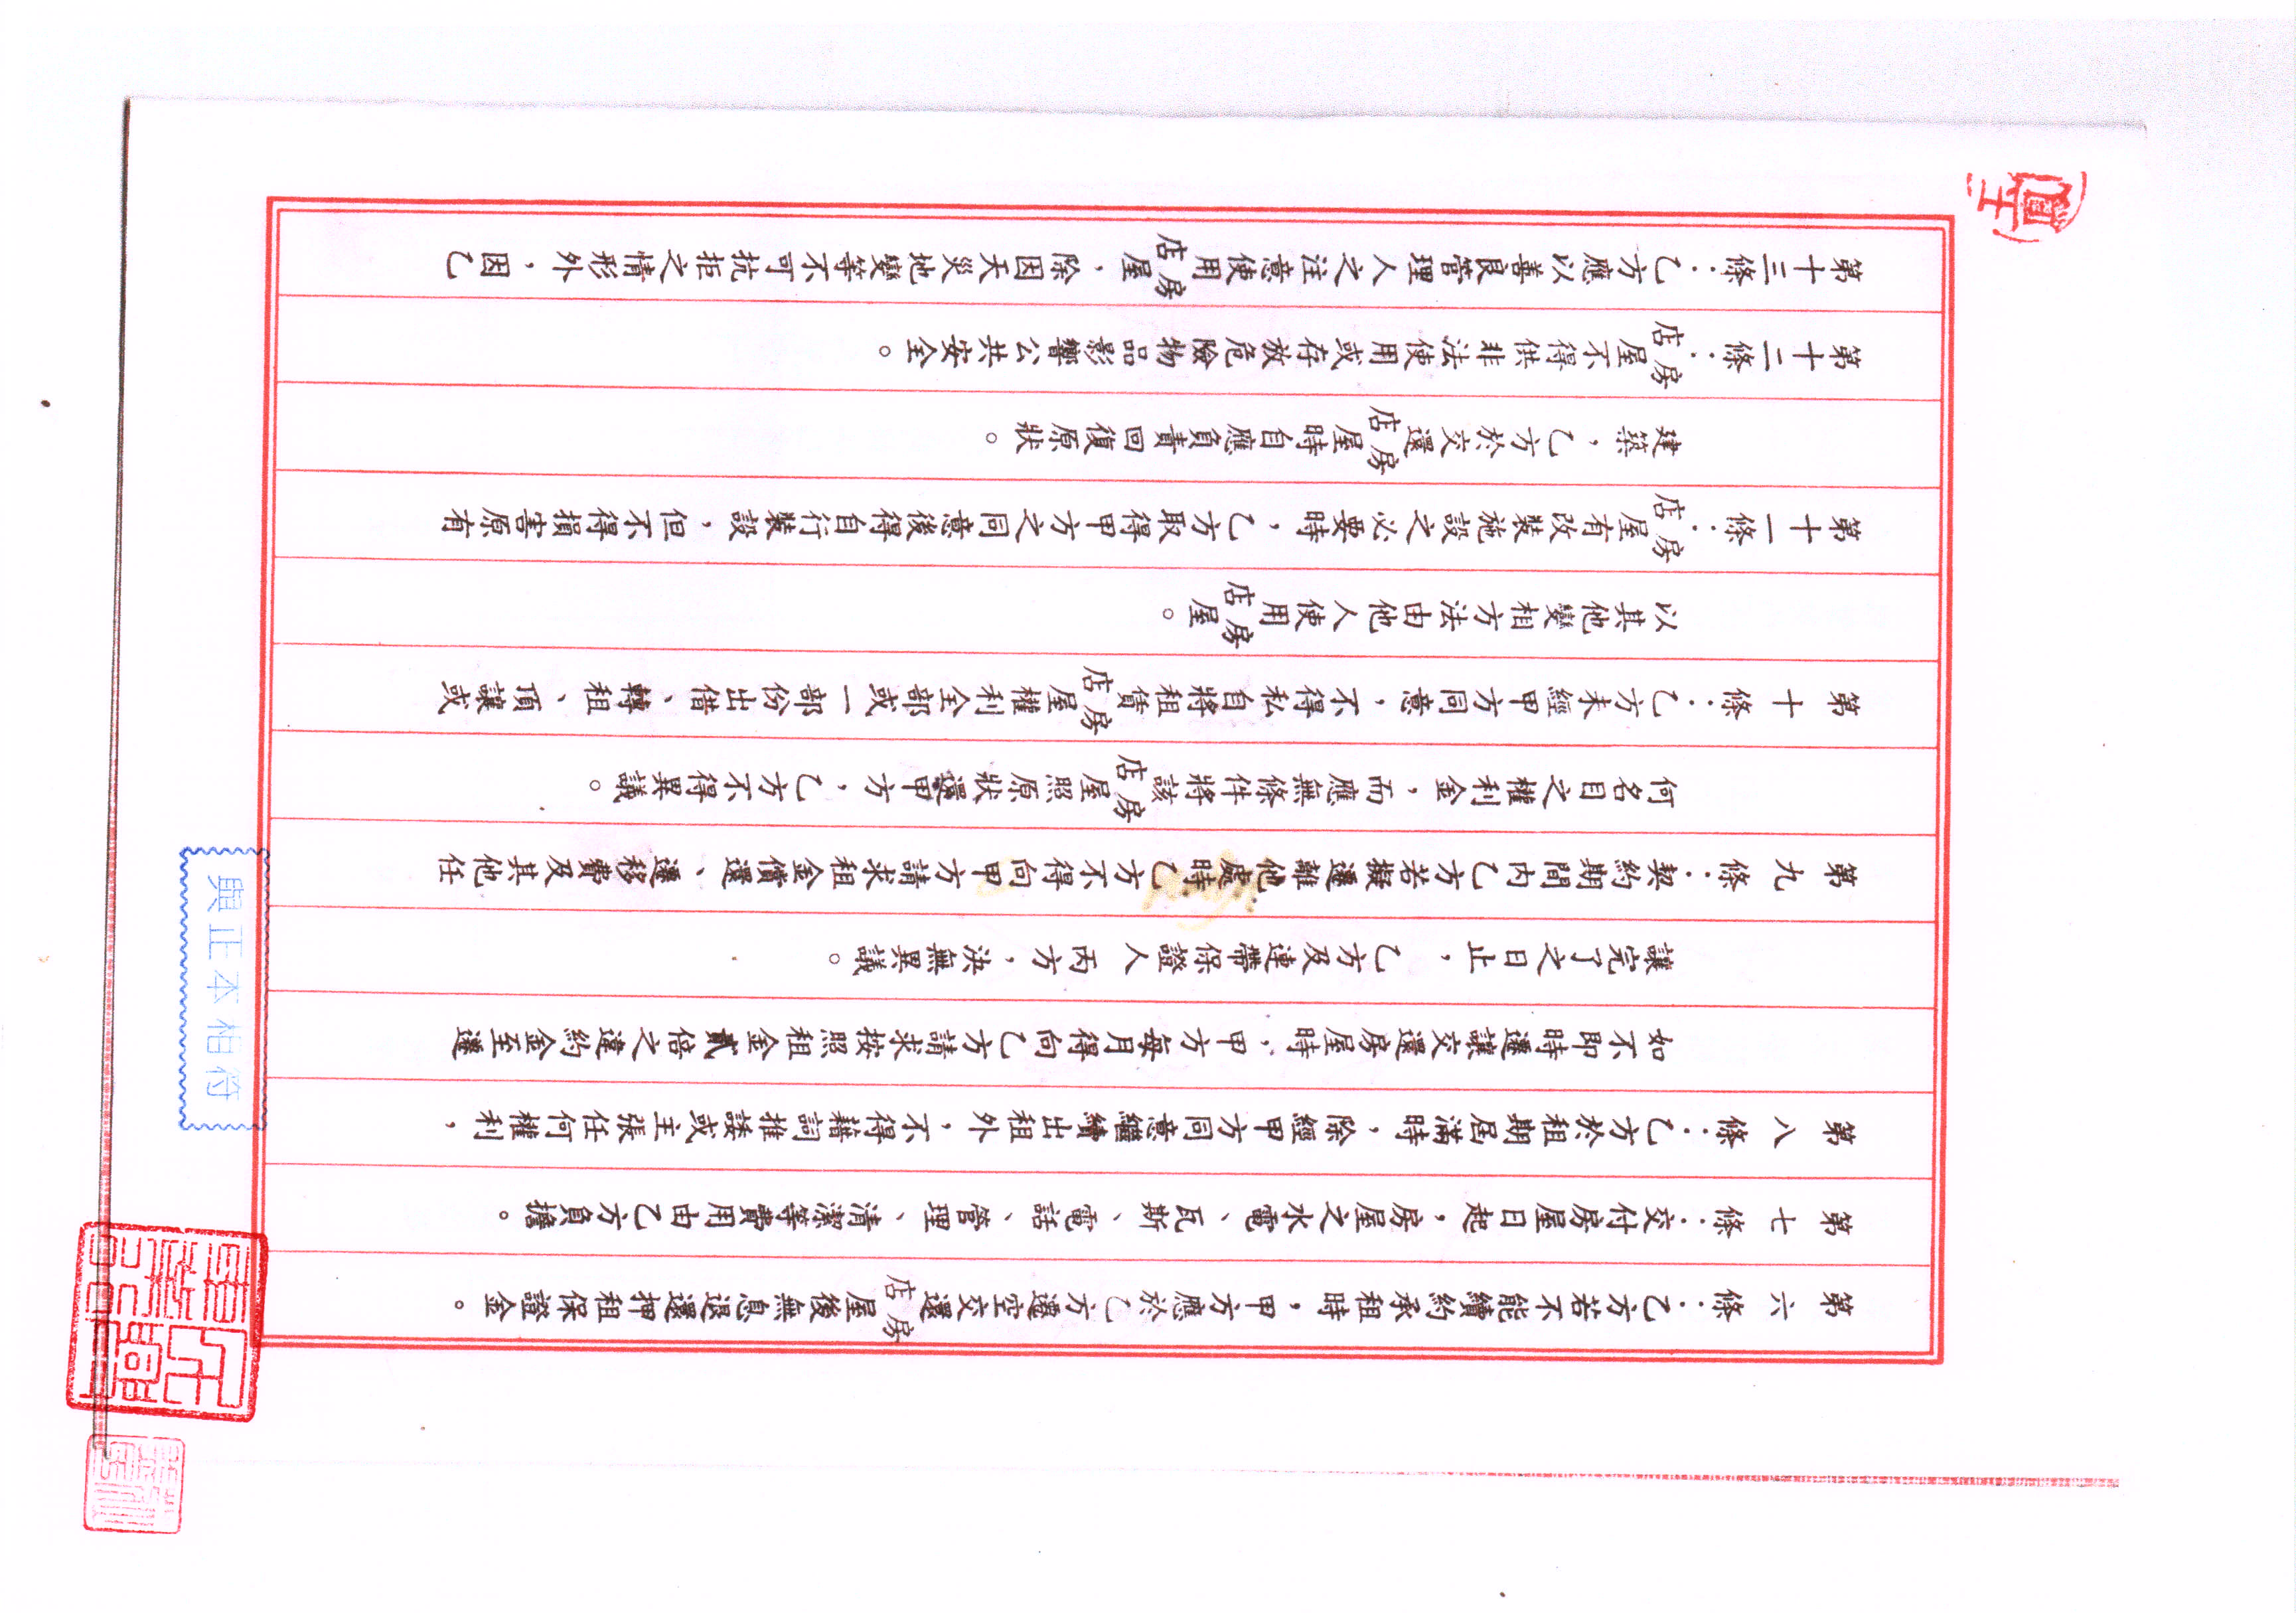 第六條：乙方若不能續約承租時，甲方應於乙方遷空交還房店屋後無息退還押租保證金。
第七條：交付房屋日起，房屋之水電、瓦斯、電話、管理、清潔等費用由乙方負擔。
第八條：乙方於租期屆滿時，除經甲方同意繼續出租外，不得藉詞推諉或主張任何權利，
如不即時遷讓交還房屋時，甲方每月得向乙方請求按照租金貳倍之違約金至遷
讓完了之日止，乙方及連帶保證人丙方，決無異議。
第九條：契約期間內乙方若擬遷離他處時乙方不得向甲方請求租金償還、遷移費及其他任
何名目之權利金，而應無條件將該房店屋照原狀還甲方，乙方不得異議。
第十條：乙方未經甲方同意，不得私自將租賃房店屋權利全部或一部份出借、轉租、頂讓或
以其他變相方法由他人使用房店屋。
第十一條：房店屋有改裝施設之必要時，乙方取得甲方之同意後得自行裝設，但不得損害原有
建築，乙方於交還房店屋時自應負責回復原狀。
第十二條：房店屋不得供非法使用或存放危險物品影響公共安全。
第十三條：乙方應以善良管理人之注意使用房店屋，除因天災地變等不可抗拒之情形外，因乙
與正本相符